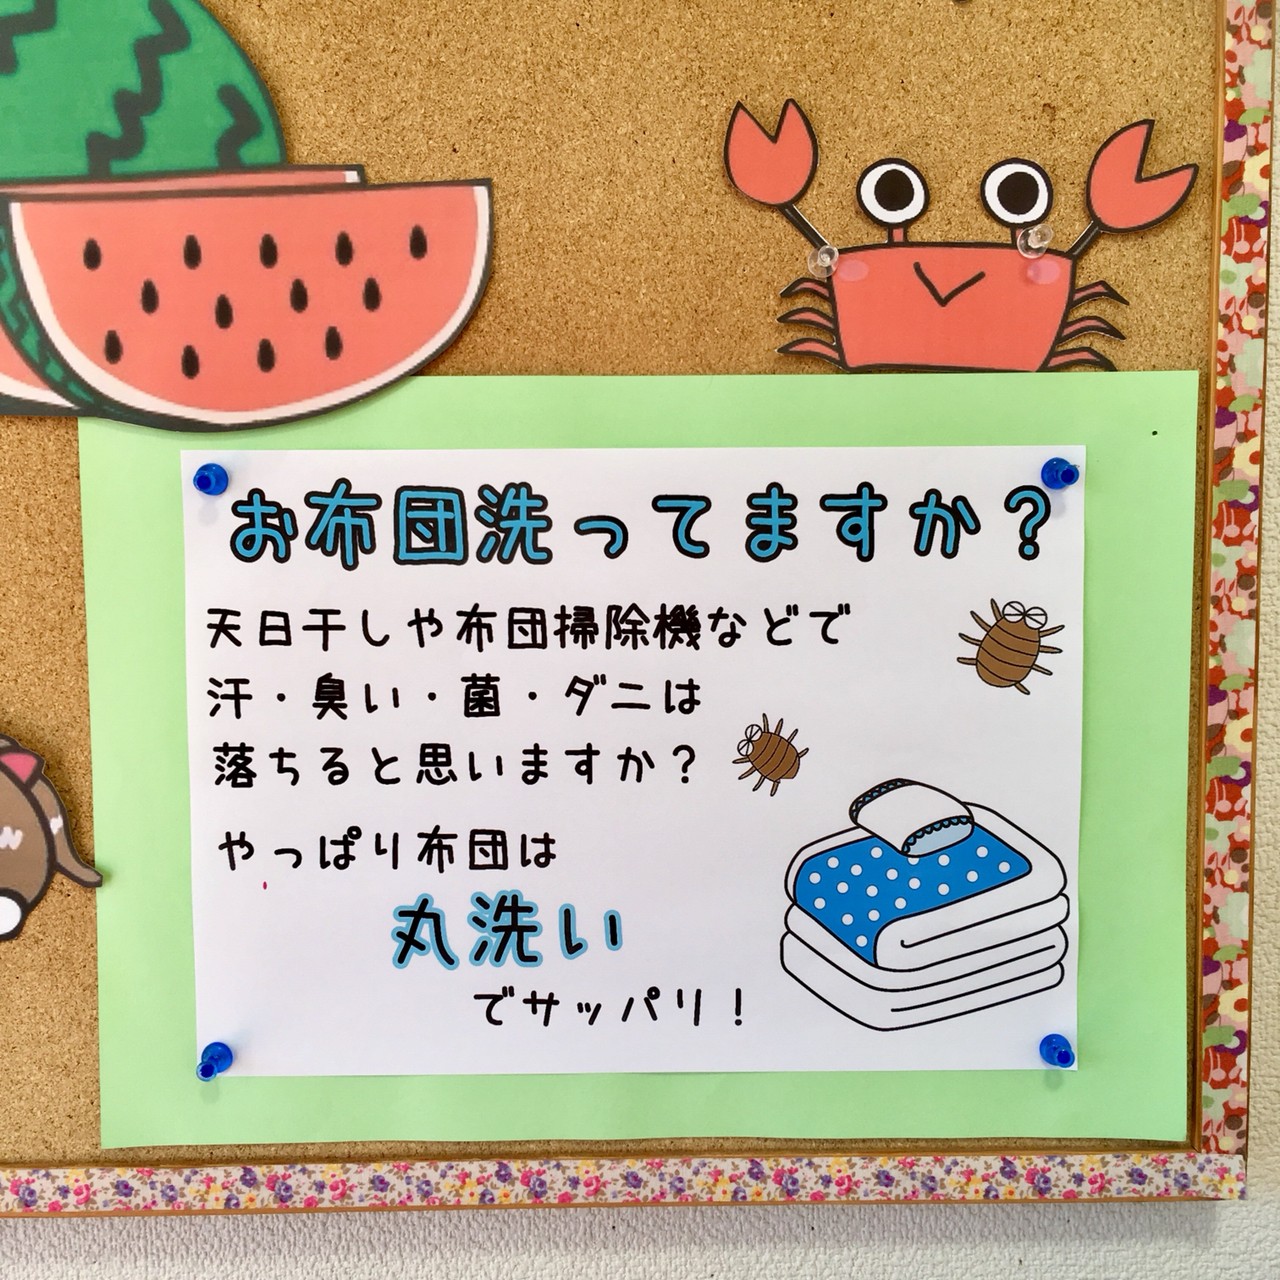 お布団洗ってますか?
天日干しや布団掃除機などで
汗・臭い・菌・ダニは
落ちると思いますか?
やっぱり布団は
丸洗い
でサッパリ!